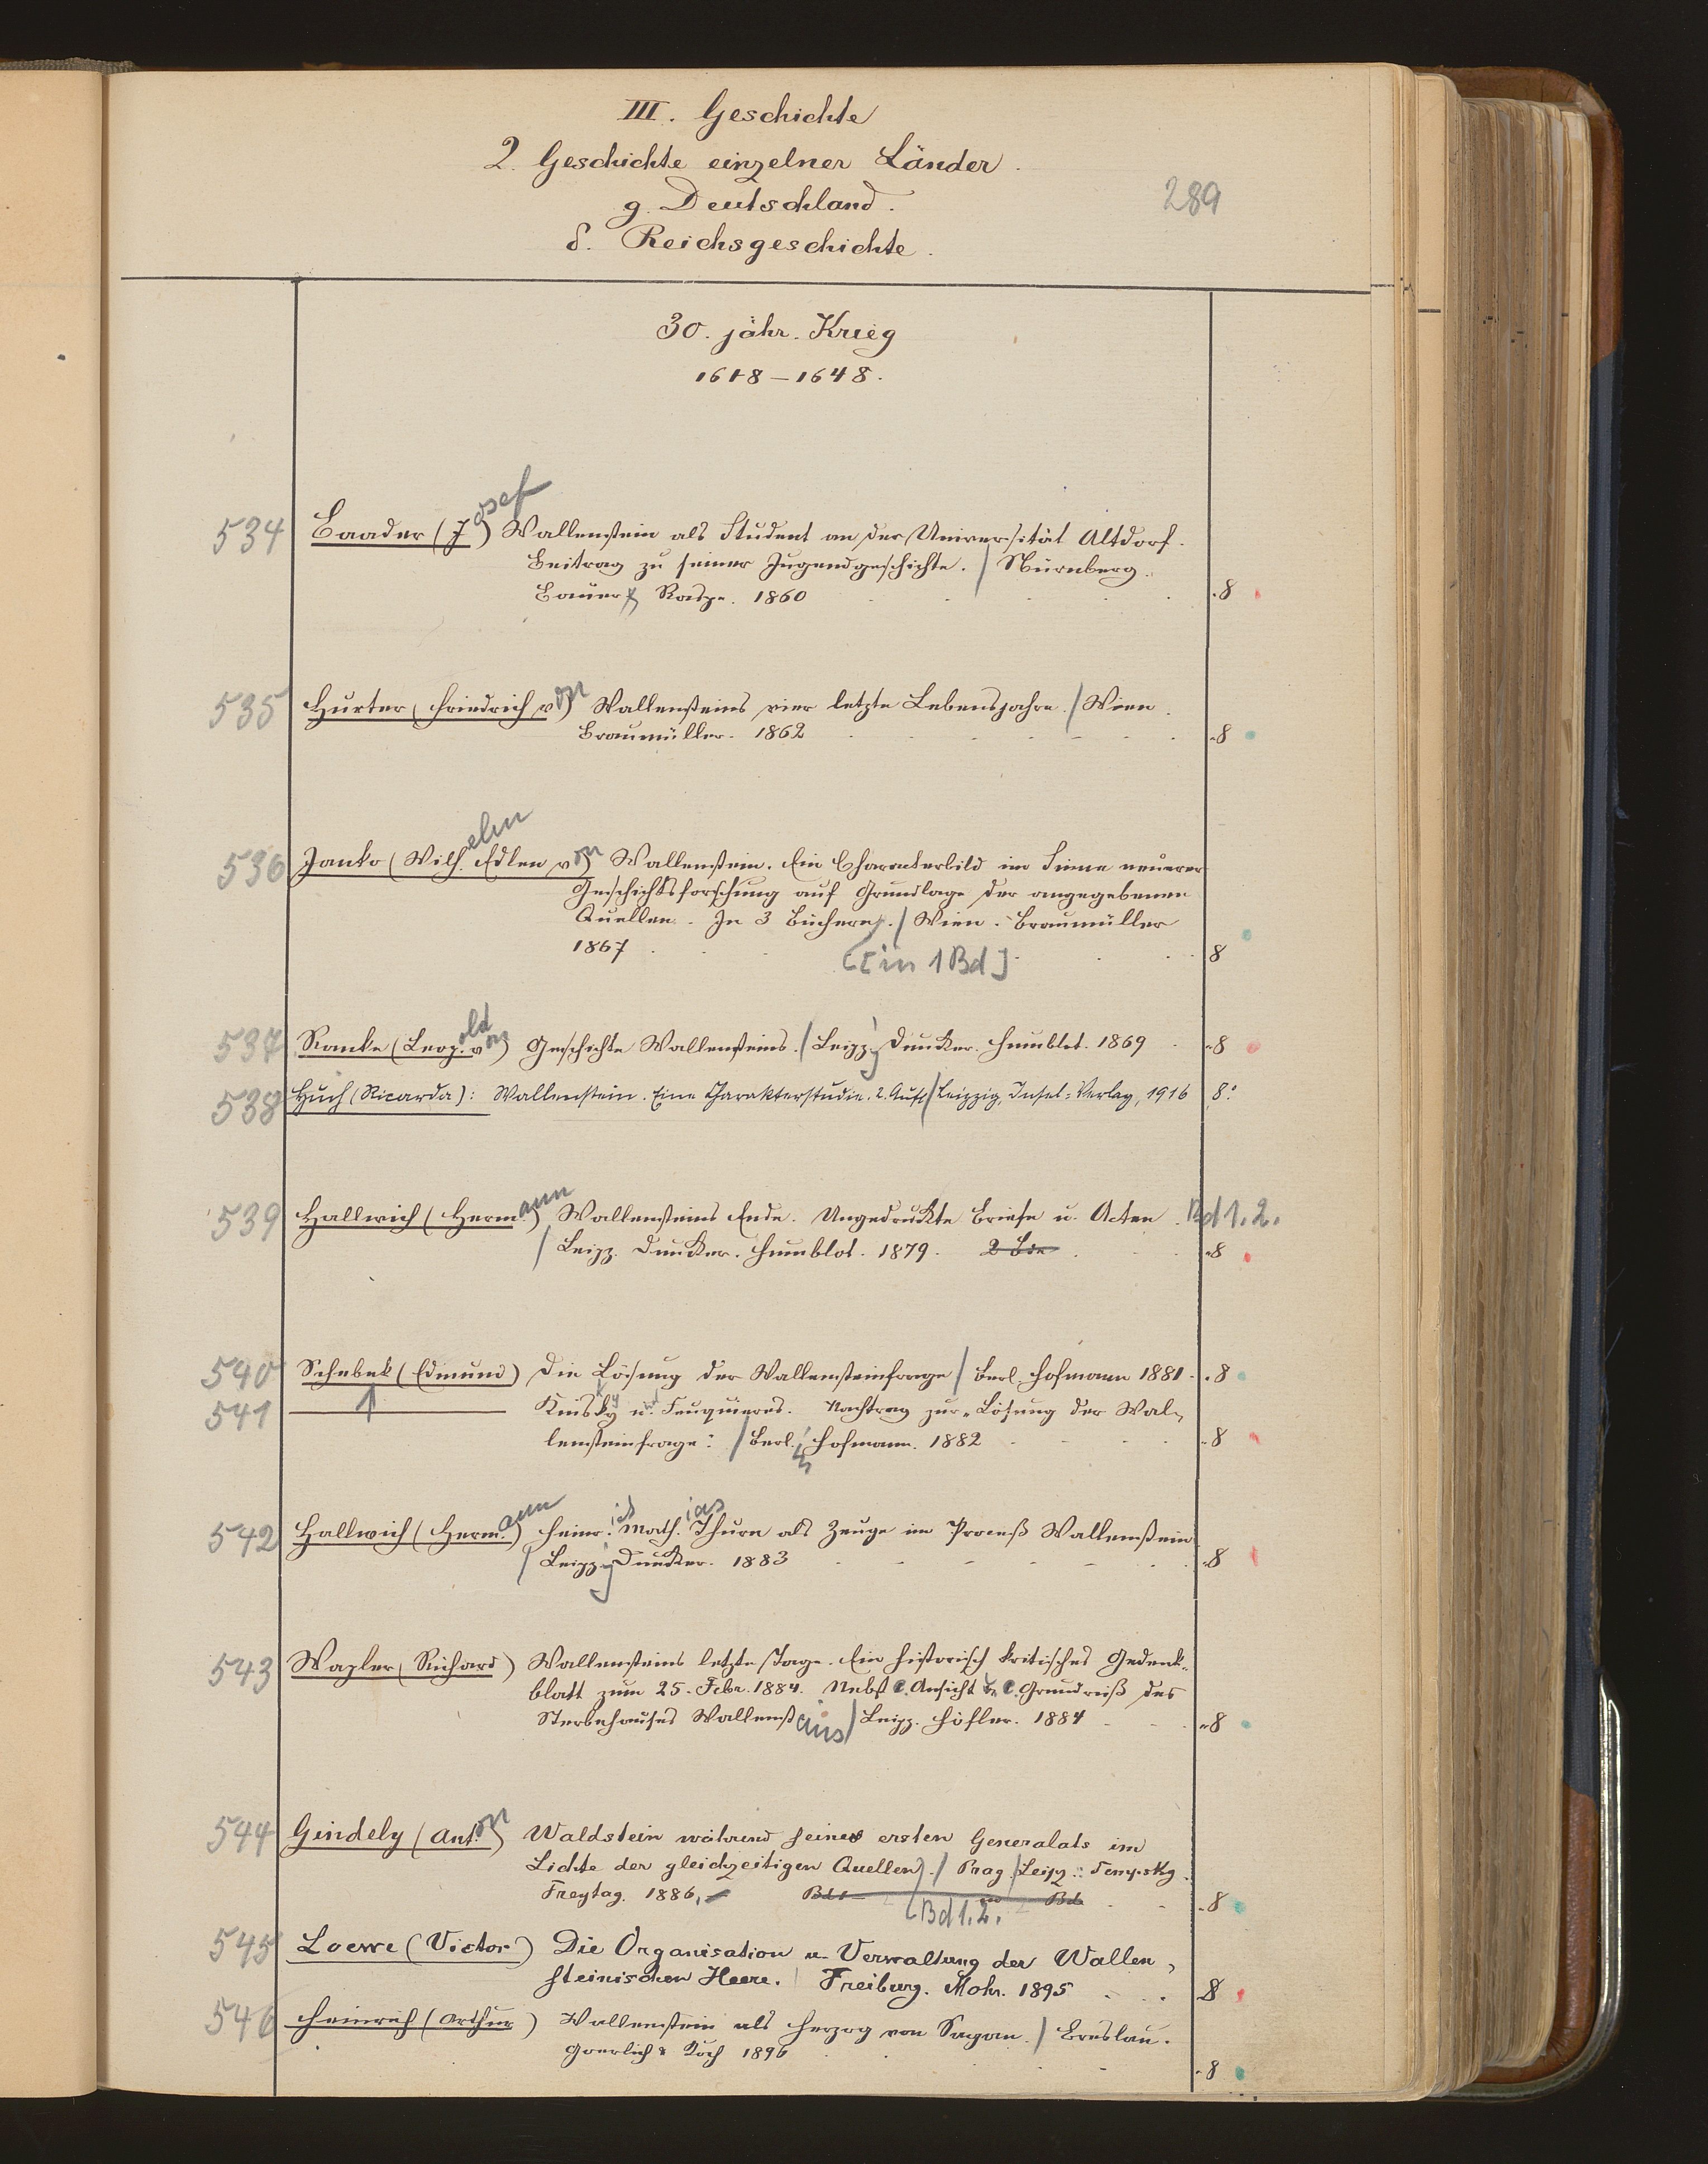 III. Geschichte
2. Geschichte einzelner Länder.
g. Deutschland.
δ. Reichsgeschichte.
289
30. jähr. Krieg
1618–1648.
534 Baader (Josef) Wallenstein als Student an der Universität Altdorf.
Beitrag zu seiner Jugendgeschichte. / Nürnberg.
Bauer & Raspe. 1860 8
535 Hurter, Friedrich von) Wallensteins vier letzte Lebensjahre. / Wien.
Braumüller. 1862 8
536 Janko (Wilhelm Edlen von) Wallenstein. Ein Charakterbild im Sinne neuerer
Geschichtsforschung auf Grundlage der angegebenen
Quellen. In 3 Büchern. / Wien. Braumüller
1867 [in 1 Bd] 8
537 Ranke (Leopold von) Geschichte Wallensteins. / Leipz. Duncker. Humblot. 1869 8
538 Huch (Ricarda): Wallenstein. Eine Charakterstudie. 2. Aufl / Leipzig, Insel-Verlag, 1916 8°
539 Hallwich (Hermann) Wallensteins Ende. Ungedruckte Briefe u. Acten. Bd 1.2.
/ Leipz. Duncker. Humblot. 1879. 2 Bde 8
540 Schebek (Edmund) Die Lösung der Wallensteinfrage / Berl. Hofmann 1881. 8
541 Kinsky u. Feuquières. Nachtrag zur „Lösung der Wal-
lensteinfrage". / Berl. Hofmann. 1882 8
542 Hallwich (Hermann) Heinr. Mathias Thurn als Zeuge im Proceß Wallenstein
/ Leipz. Duncker. 1883 8
543 Wapler (Richard) Wallensteins letzte Tage. Ein historisch kritisches Gedenk-
blatt zum 25. Febr. 1884. Nebst e. Ansicht u. e. Grundriß des
Sterbehauses Wallenst / Leipz. Höfler. 1884 8
544 Gindely (Anton) Waldstein während seines ersten Generalats im
Lichte der gleichzeitigen Quellen. / Prag. Leipz.: Tempsky.
Freytag. 1886, Bd 1 Bd 8
[Bd 1.2.
545 Loewe (Victor) Die Organisation u. Verwaltung der Wallen-
steinischen Heere. / Freiburg. Mohr. 1895 8
546 Heinrich (Arthur) Wallenstein als Herzog von Sagan. / Breslau.
Goerlich & Koch 1896 8